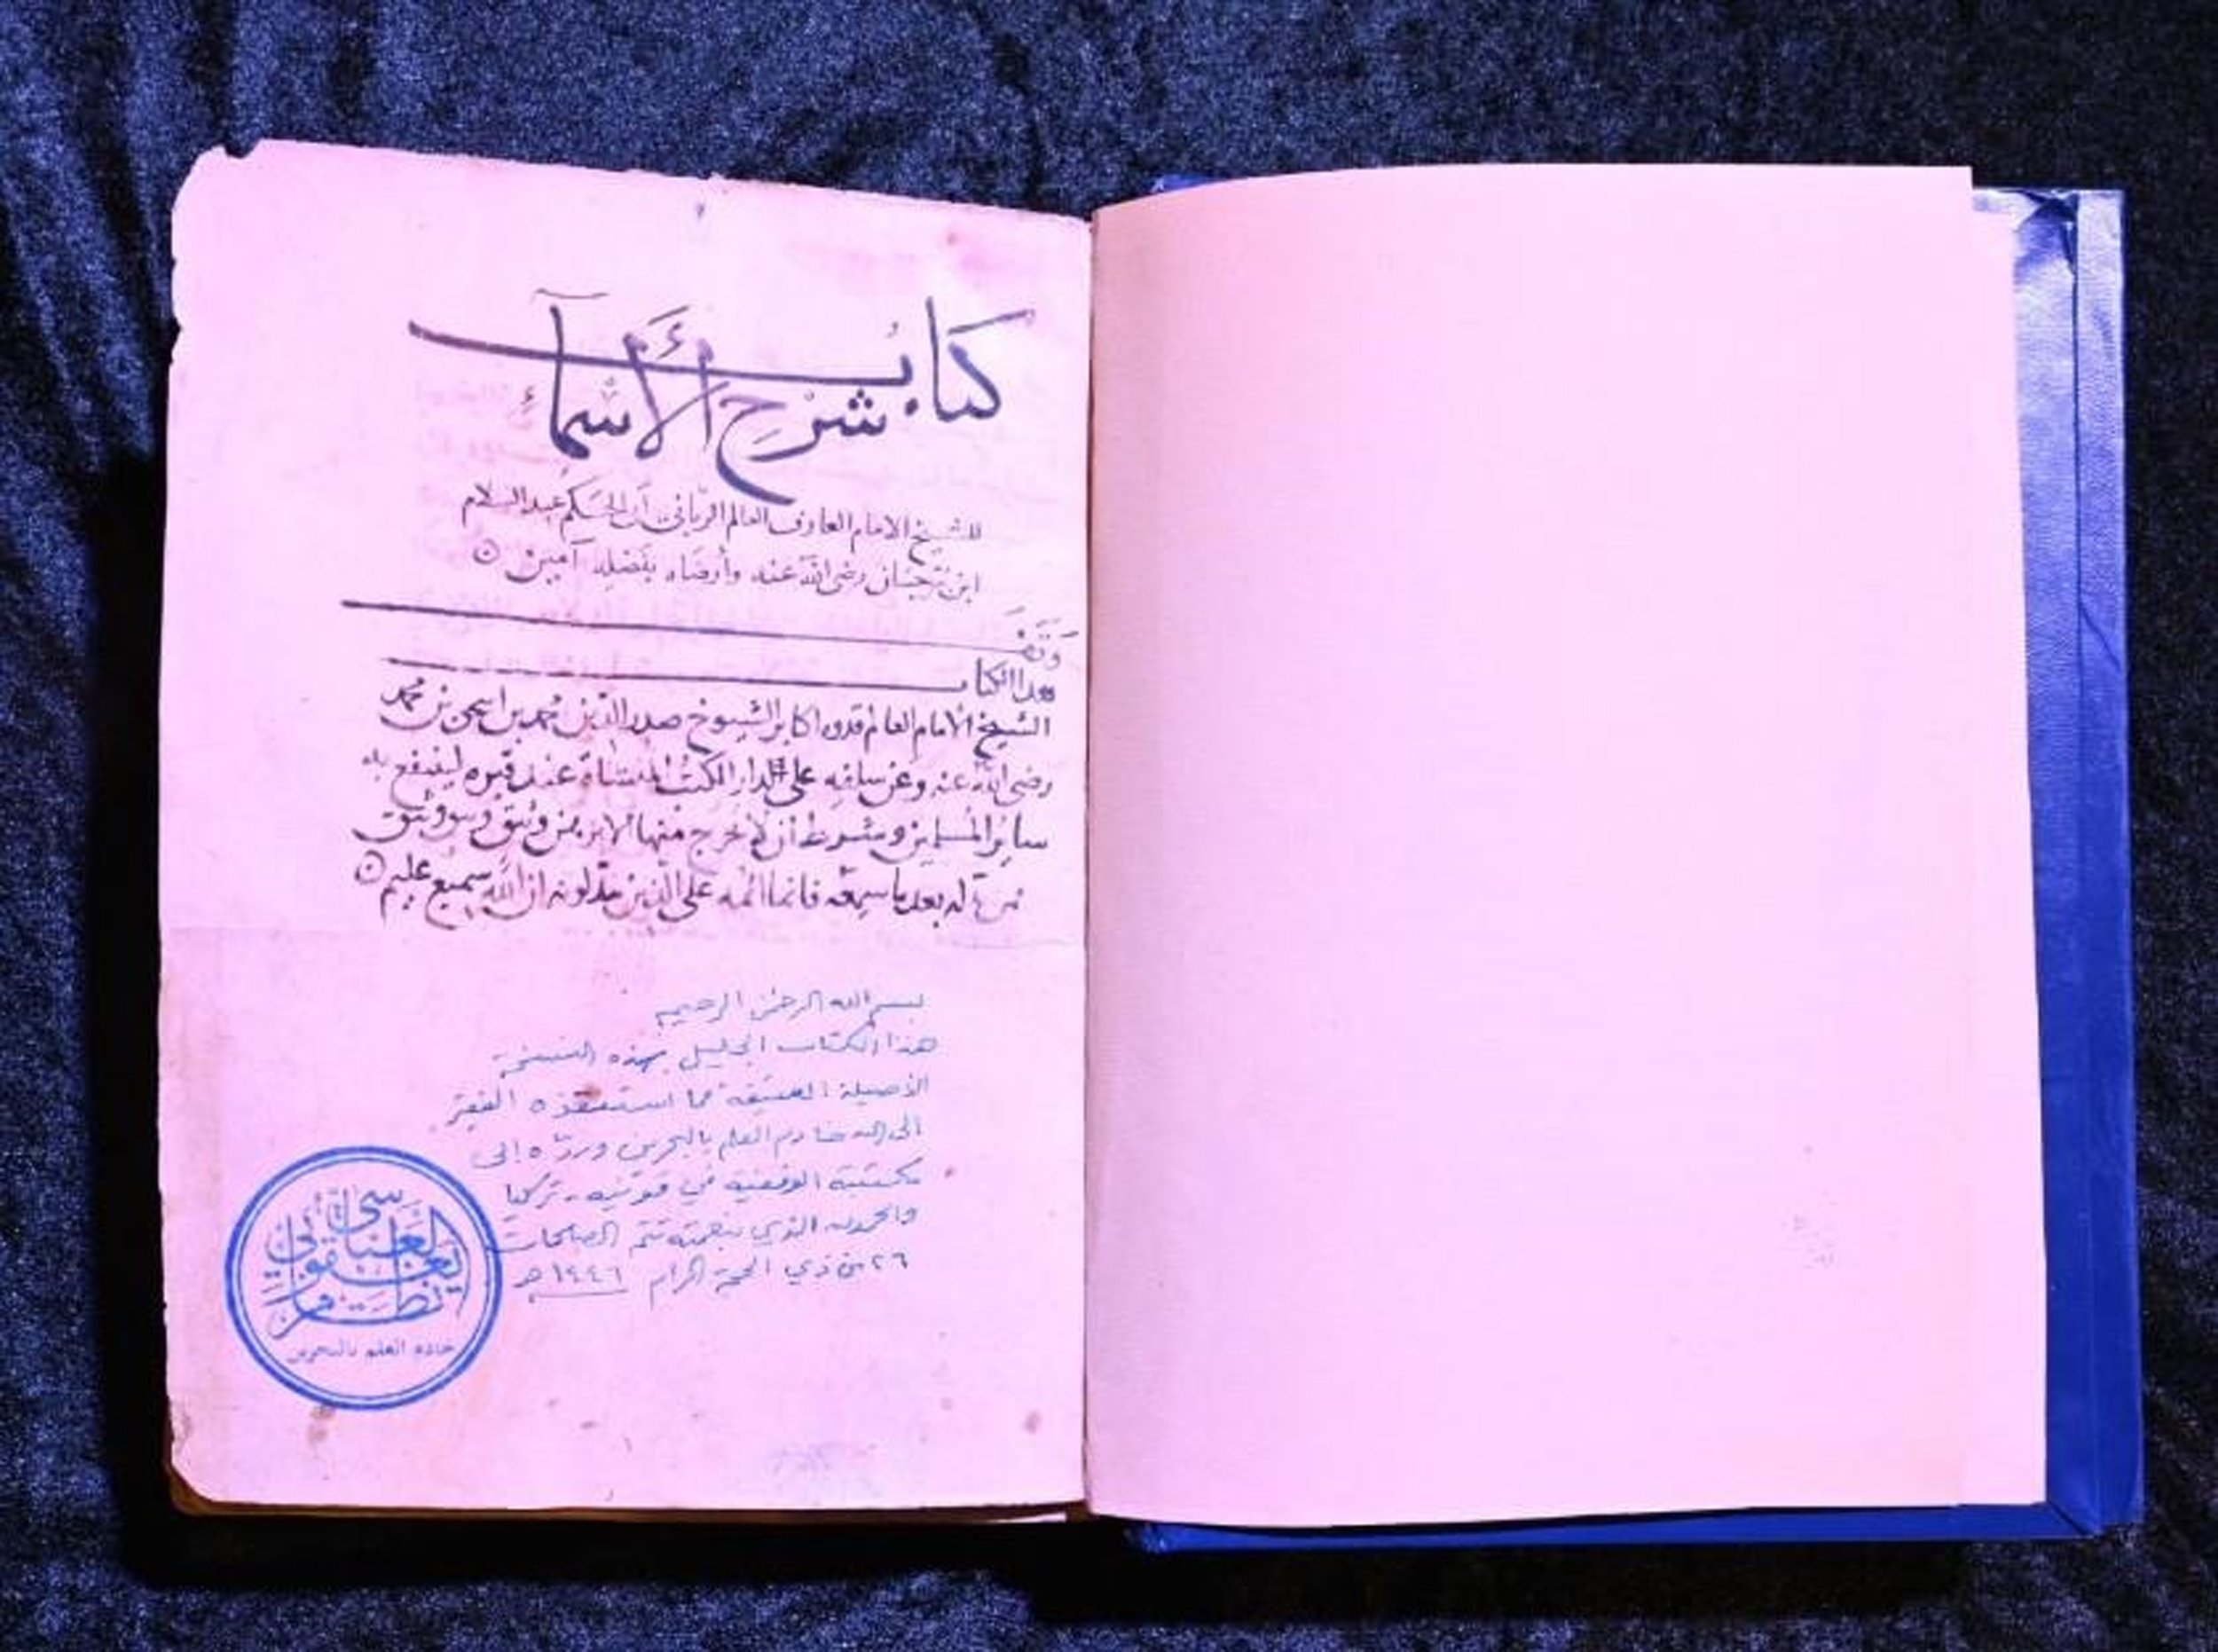 كتاب
شرح الأسماء
للشيخ الامام العارف العالم الرباني أبي الحكم عبد السلام
ابن برجان رضي الله عنه وأرضاه بفضله آمين
وقف
هذا الكتاب
الشيخ الامام العالم قدوة اكابر الشيوخ صدر الدين محمد بن اسحق بن محمد
رضي الله عنه وعن سلفه على دار الكتب المنشأة عند قبره لينتفع به
سائر المسلمين وشرط ان لا تخرج منها الا برهن وثيق
بدله بعد ما سمعه فانما اثمه على الذين يبدلونه ان الله سميع عليم
بسم الله الرحمن الرحيم
هذا الكتاب الجليل بهذه النسخة
الأصيلة العتيقة مما استنقذه الفقير
الى الله خادم العلم بالبحرين وردّه إلى
مكتبته الوقفية في قونية - تركيا
والحمد لله الذي بنعمته تتم الصالحات
٢٦ من ذي الحجة الحرام ١٤٤٦ هـ
العباسي
يعقوبي
نظام
خادم العلم بالبحرين